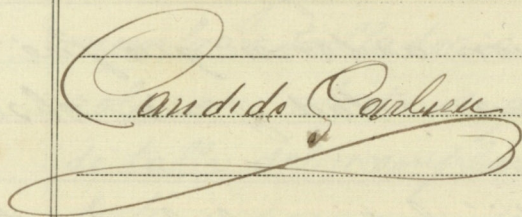 Candido Carlsen